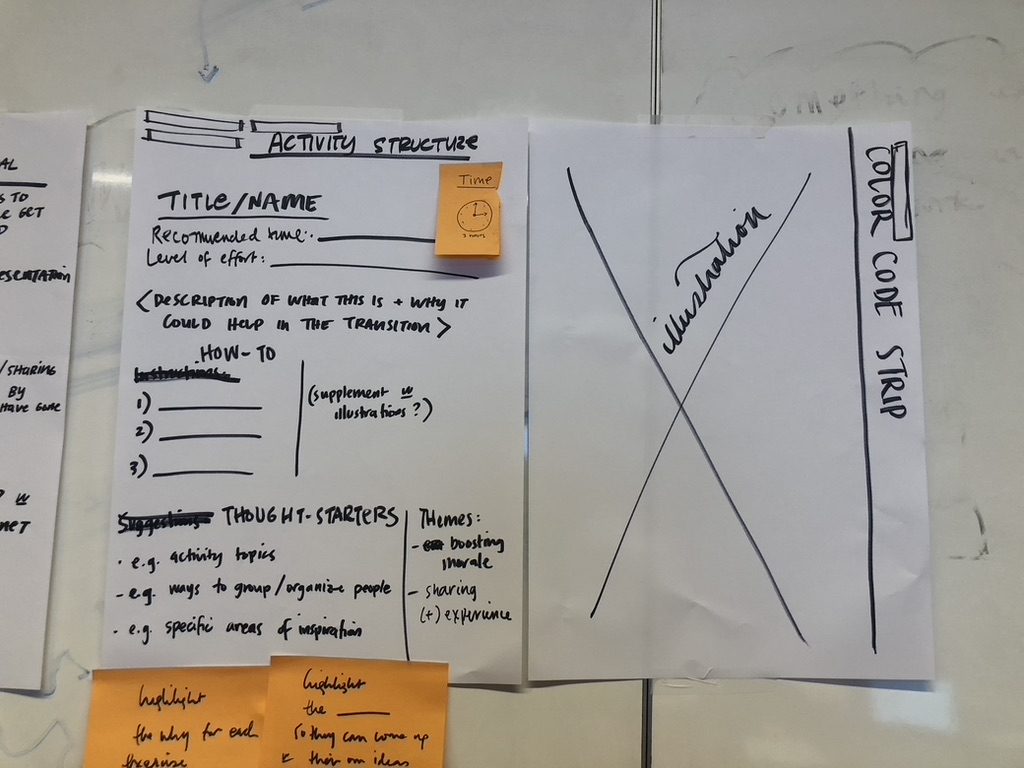 AL
S TO
GET
ESENTATION
/SHARING
BY
HAVE GONE
W
NET
ACTIVITY STRUCTURE
TITLE/NAME
Time
Recommended time:
Level of effort:
<DESCRIPTION OF WHAT THIS IS + WHY IT
COULD HELP IN THE TRANSITION>
HOW-TO
Instructions
1)
2)
3)
(supplement w
illustrations?)
Suggestions THOUGHT-STARTERS
· e.g. activity topics
- e.g. ways to group/organize people
· e.g. specific areas of inspiration
THEMES:
- boosting
morale
- sharing
(+) experience
illustration
COLOR CODE STRIP
highlight
the why for each
exercise
highlight
the ____
so they can come up
their own ideas